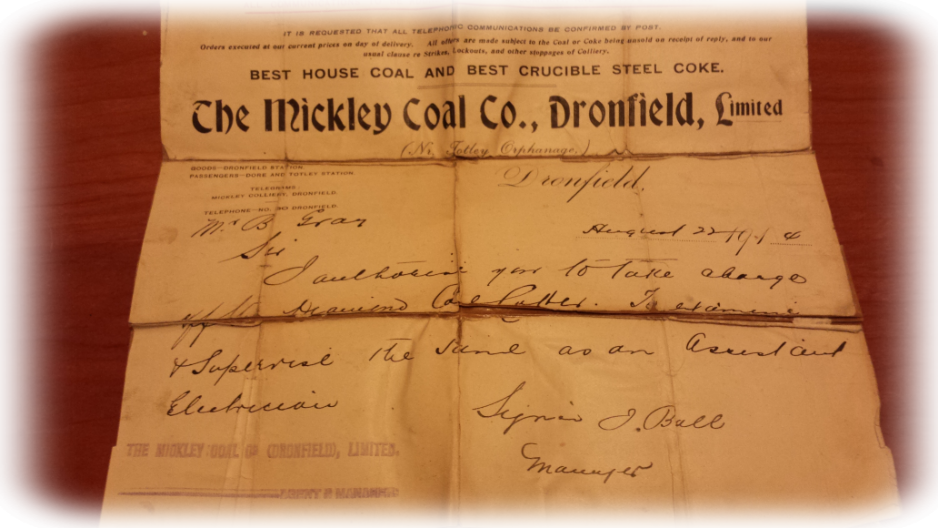 IT IS REQUESTED THAT ALL TELEPHONIC COMMUNICATIONS BE CONFIRMED BY POST.
Orders executed at our current prices on day of delivery. All offers are made subject to the Coal or Coke being unsold on receipt of reply, and to our
usual clause re Strikes, Lockouts, and other stoppages of Colliery.
BEST HOUSE COAL AND BEST CRUCIBLE STEEL COKE.
The Mickley Coal Co., Dronfield, Limited
(Nr. Totley Orphanage.)
GOODS—DRONFIELD STATION.
PASSENGERS—DORE AND TOTLEY STATION.
TELEGRAMS:
MICKLEY COLLIERY, DRONFIELD.
TELEPHONE—NO. DRONFIELD.
Dronfield,
August 22 1914
Mr B Gray
Sir
I authorise you to take charge
of the Diamond Coal Cutter. To examine
& Supervise the same as an Assistant
Electrician
Signed J. Ball
Manager
THE MICKLEY COAL CO (DRONFIELD), LIMITED.
AGENT & MANAGER